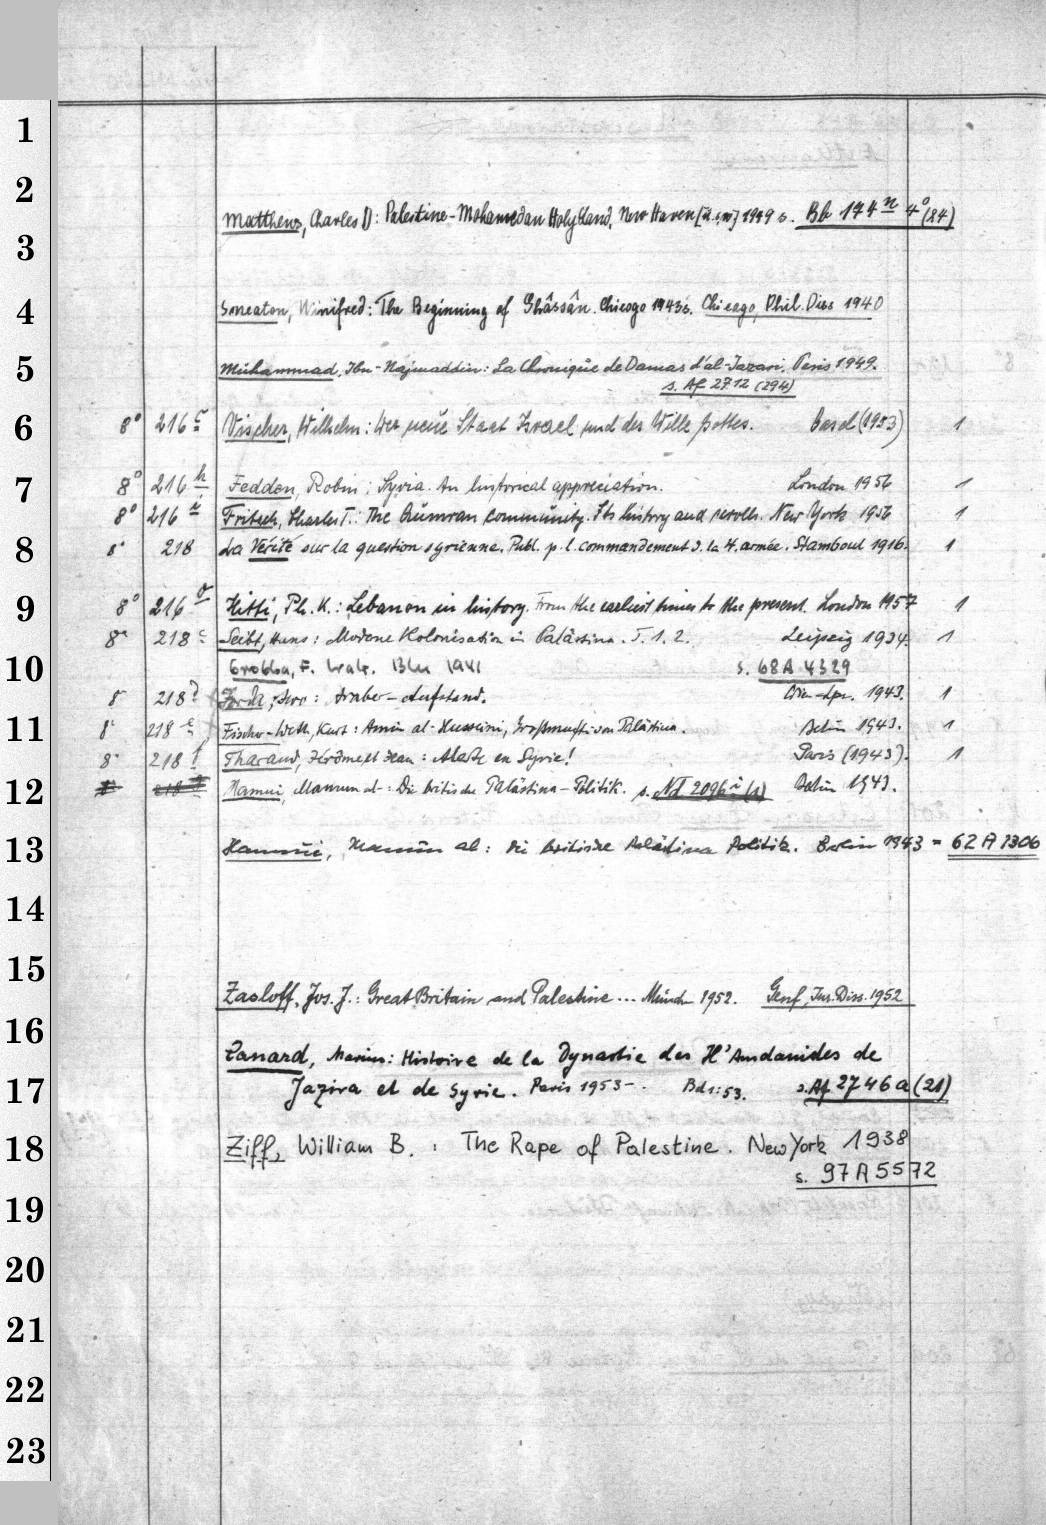 1
2
Matthews, Charles D: Palestine-Mohamedan Holy Land, New Haven [u.a.] 1949 s. Bk 174ⁿ 4° (84)
3
4 Smeaton, Winifred: The Beginning of Ghâssân. Chicago 1943 s. Chicago, Phil. Diss 1940
5 Muhammad, Ibn-Najmaddin: La Chronique de Damas d'al-Jazari. Paris 1949.
s. Af 2712 (294)
6 8° 216 Vischer, Wilhelm: Der neue Staat Israel und der Wille Gottes. Basel (1953) 1
7 8° 216 h Fedden, Robin: Syria. An historical appreciation. London 1956 1
8° 216 Fritsch, Charles T.: The Qumran community. Its history and scrolls. New York 1956 1
8 8° 218 La Vérité sur la question syrienne. Publ. p. l. commandement d. la 4. armée. Stamboul 1916. 1
9 8° 216 Hitti, Ph. K.: Lebanon in history. From the earliest times to the present. London 1957 1
8° 218 c Seibt, Hans: Moderne Kolonisation in Palästina. T. 1. 2. Leipzig 1934. 1
10 Grobba, F. Irak. Bln 1941 s. 68 A 4329
8° 218 : Araber-Aufstand. 1943. 1
11 8° 218 e Fischer-Weth, Kurt: Amin al-Husseini, Großmufti von Palästina. Berlin 1943. 1
8° 218 f Tharaud, Jérôme et Jean: Alerte en Syrie! Paris (1943). 1
12 Hamui, Mamun al-: Die britische Palästina-Politik. s. Nd 2096 i (1) Berlin 1943.
13 Hamui, Mamun al: Die britische Palästina Politik. Berlin 1943 = 62 A 1306
14
15
Zasloff, Jos. J.: Great Britain and Palestine... Münch 1952. Genf, Jur. Diss. 1952
16
Canard, Marius: Histoire de la Dynastie des H'Amdanides de
17 Jazira et de Syrie. Paris 1953-. Bd 1:53. s. Af 2746 a (21)
18 Ziff, William B.: The Rape of Palestine. New York 1938
s. 97 A 5572
19
20
21
22
23